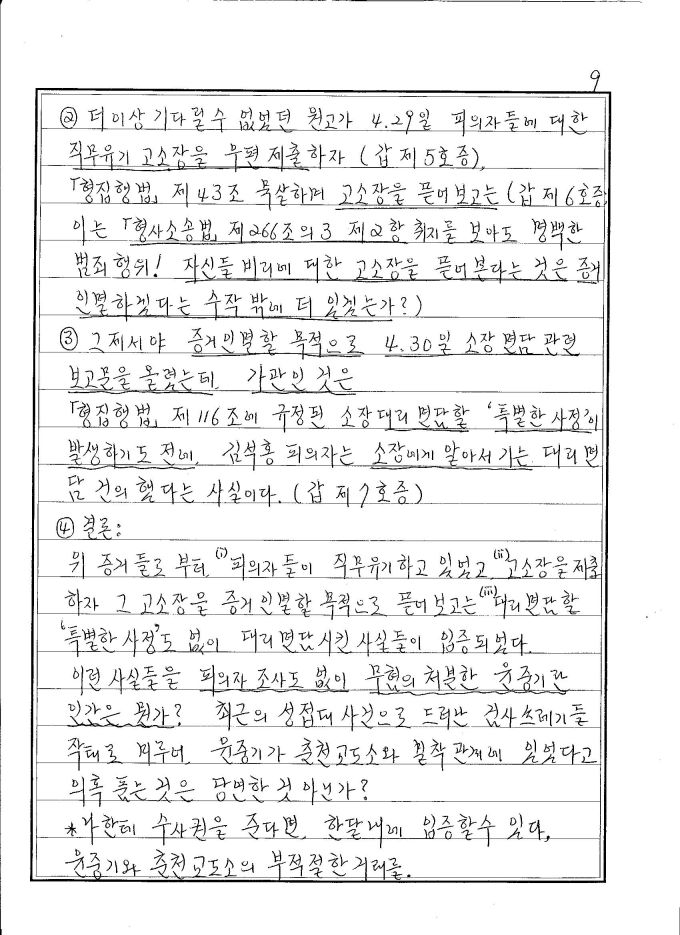 9
② 더이상 기다릴 수 없었던 원고가 4.29일 피의자들에 대한
직무유기 고소장을 우편 제출하자 (갑 제5호증),
「형집행법」 제43조 묵살하며 고소장을 뜯어보고는 (갑 제6호증,
이는 「형사소송법」 제266조의3 제2항 취지를 보아도 명백한
범죄행위! 자신들 비리에 대한 고소장을 뜯어본다는 것은 증거
인멸하겠다는 수작 밖에 더 있겠는가?)
③ 그제서야 증거인멸할 목적으로 4.30일 소장면담 관련
보고문을 올렸는데, 가관인 것은
「형집행법」 제116조에 규정된 소장대리 면담할 '특별한 사정'이
발생하기도 전에, 김석홍 피의자는 소장에게 알아서 기는 대리면
담 건의 했다는 사실이다. (갑 제7호증)
④ 결론:
위 증거들로 부터, (i)피의자들이 직무유기하고 있었고, (ii)고소장을 제출
하자 그 고소장을 증거인멸할 목적으로 뜯어보고는 (iii)대리면담할
'특별한 사정'도 없이 대리면담시킨 사실들이 입증되었다.
이런 사실들을 피의자 조사도 없이 무혐의 처분한 윤중기란
인간은 뭔가? 최근의 성접대 사건으로 드러난 검사쓰레기들
작태로 미루어, 윤중기가 춘천교도소와 밀착관계에 있었다고
의혹 품는 것은 당연한 것 아닌가?
*나한테 수사권을 준다면, 한달내에 입증할 수 있다,
윤중기와 춘천교도소의 부적절한 거래를.